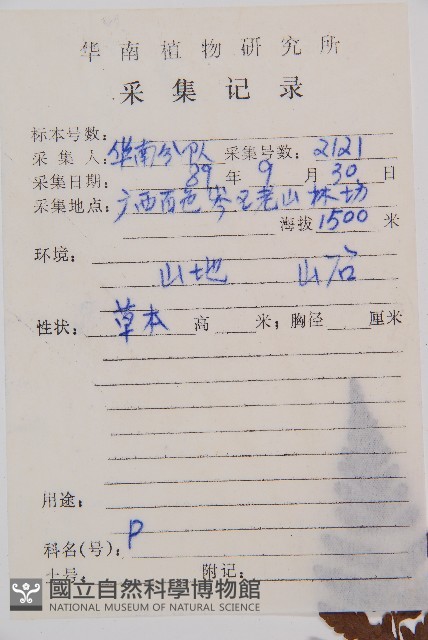 华南植物研究所
采集记录
标本号数：
采集人：华南分队 采集号数：2121
采集日期：89年9月30日
采集地点：广西百色岑王老山林场
海拔1500米
环境：
山地 山谷
性状：草本 高 米；胸径 厘米
用途：
科名(号)：P
附记：
國立自然科學博物館
NATIONAL MUSEUM OF NATURAL SCIENCE